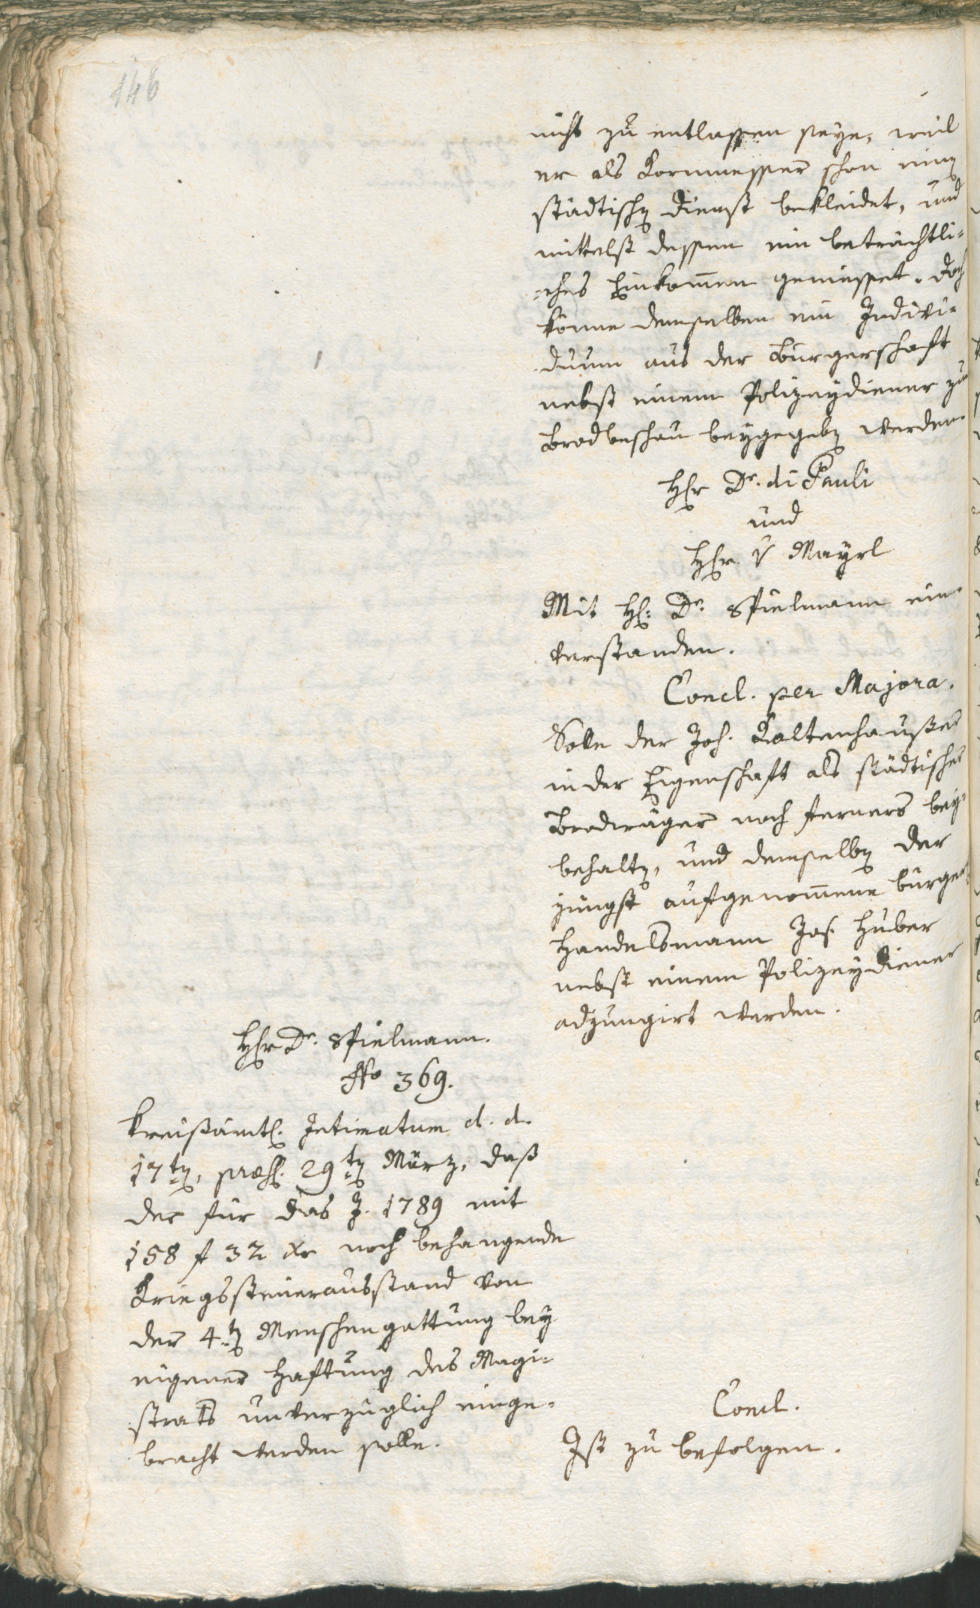 146
nicht zu entlassen seye, weil
er als Kornmesser schon einen
städtischen Dienst bekleidet, und
mittelst dessen ein beträchtli-
-ches Einkommen geniesset. Doch
könne demselben ein Indivi-
duum aus der Burgerschaft
nebst einem Polizeydiener zur
Brodbeschau beygegeben werden.
Hhr Dr. di Pauli
und
Hhr. v Mayrl
Mit H: Dr. Spielmann ein-
verstanden.
Concl. per Majora.
Solle der Joh. Kaltenhauser
in der Eigenschaft als städtischer
Brodwäger noch ferners bey-
behalten, und demselben der
jüngst aufgenommene burger
Handelsmann Jos. Huber
nebst einem Polizeydiener
adjungirt werden.
Hhr Dr. Spielmann.
No 369.
Kreisämtl. Intimatum d. d.
17ten, præs. 29ten März, daß
der für das J. 1789 mit
158 f 32 xr noch behangende
Kriegssteuerausstand von
der 4ten Menschengattung bey
eigener Haftung des Magi-
strats unverzüglich einge-
bracht werden solle.
Concl.
Ist zu befolgen.